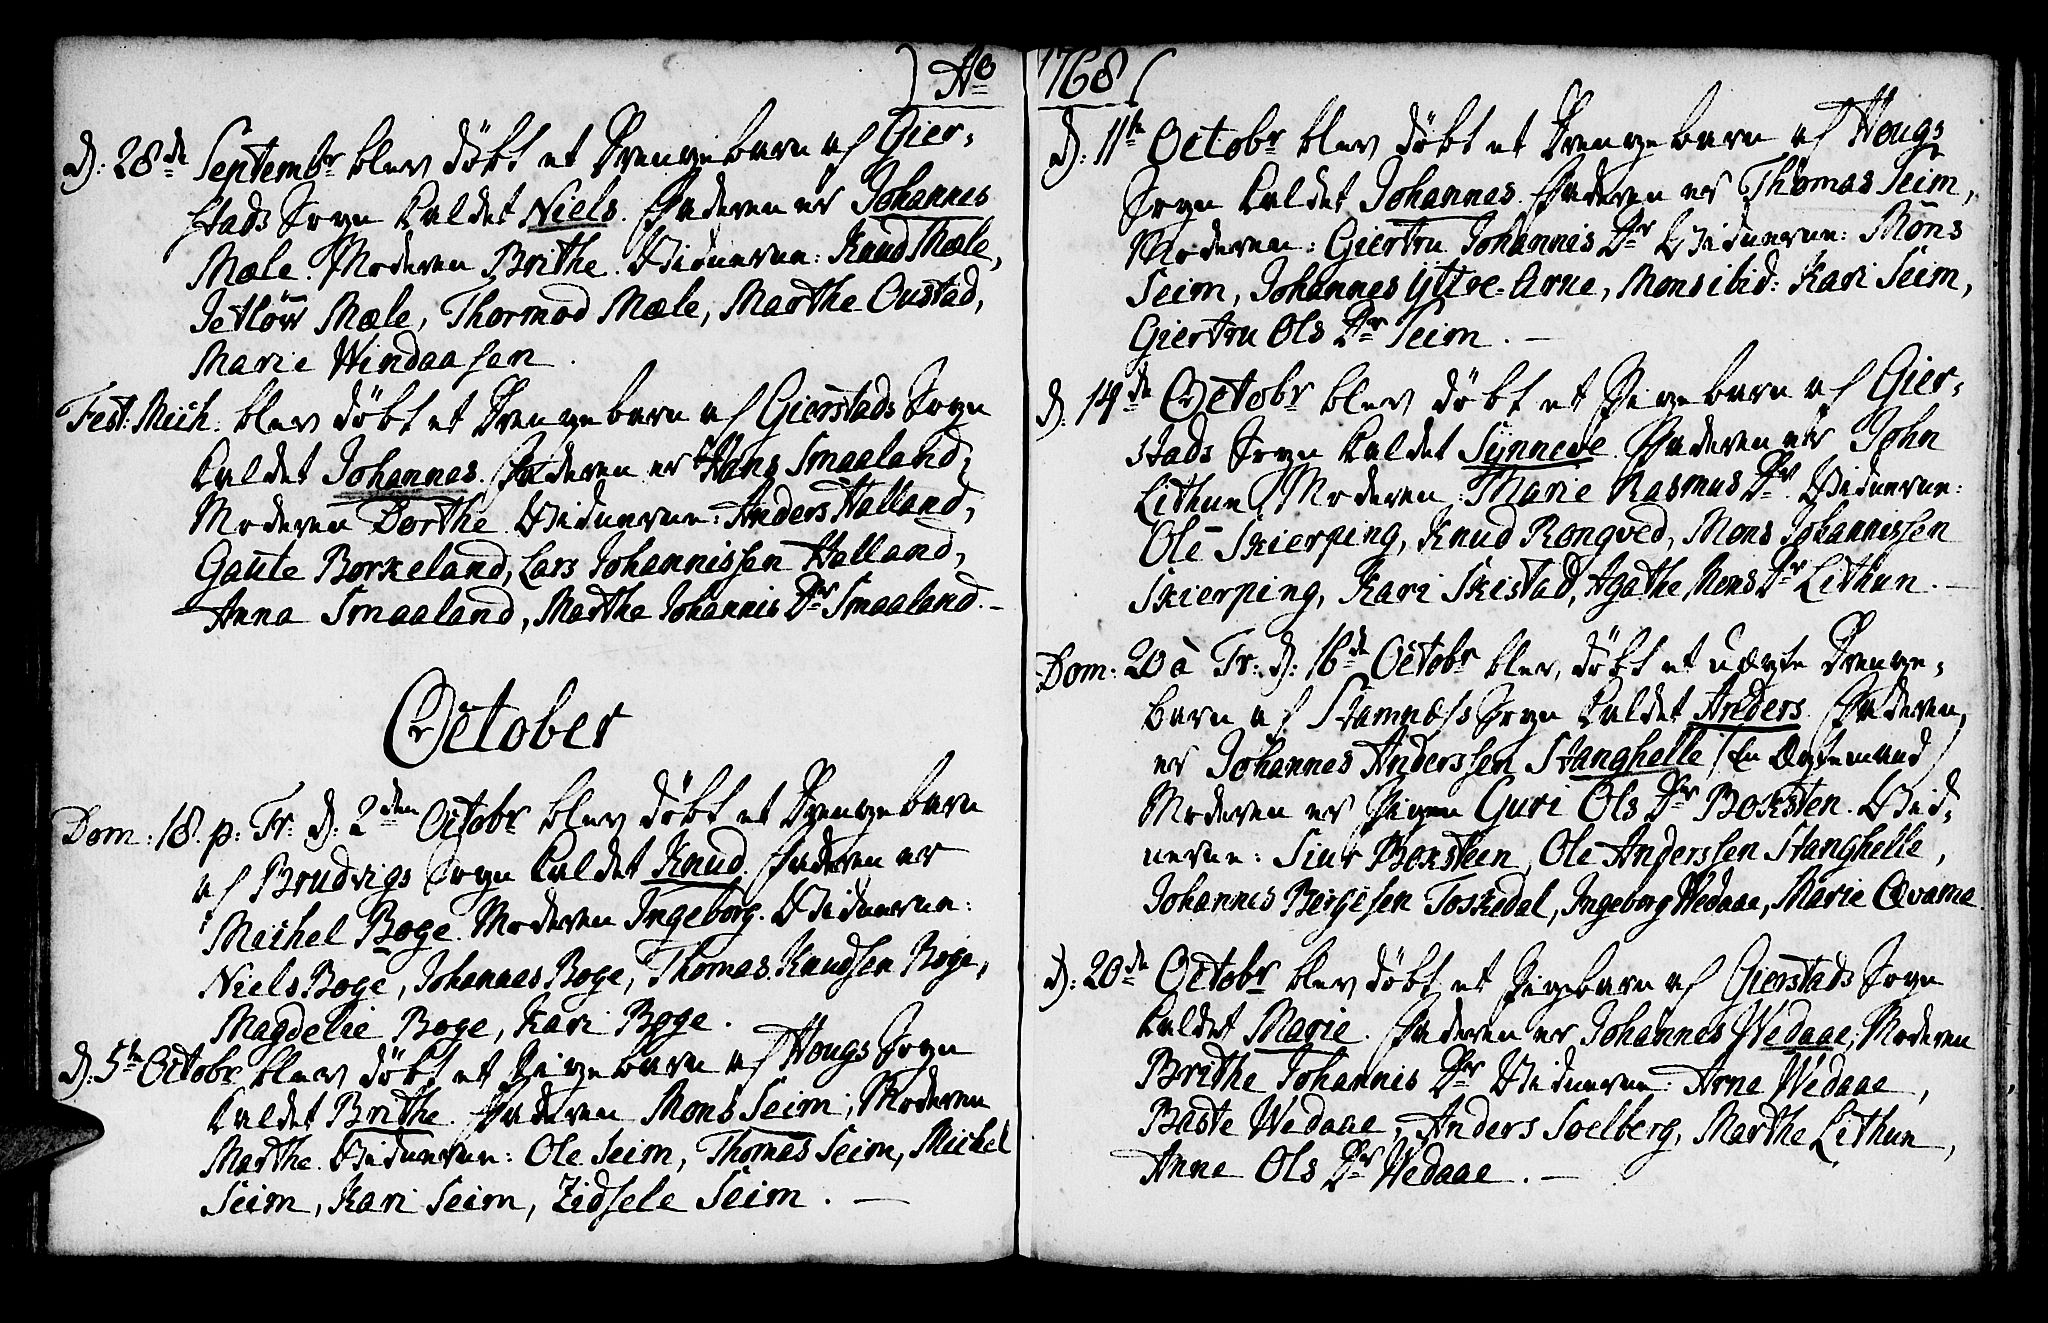 Ao
d: 28de Septembr blev døbt et Drengebarn af Gier-
stads Sogn kaldet Niels. Faderen er Johannes
Mæle. Moderen Brithe. Vidnerne: Knud Mæle,
Mæle, Thormod Mæle, Marthe Oustad,
Marie Windaasen.
Fest: Mich: blev døbt et Drengebarn af Gierstads Sogn
kaldet Johannes. Faderen er Hans Smaaland,
Moderen Dorthe. Vidnerne: Anders Halland,
Gaute Borkeland, Lars Johannissen Halland,
Anna Smaaland, Marthe Johannis Dr Smaaland. -
October
Dom: 18. p: Tr: d: 2den Octobr blev døbt et Drengebarn
af Brudvigs Sogn kaldet Knud. Faderen er
Michel Boge. Moderen Ingeborg. Vidnerne:
Niels Boge, Johannes Boge, Thomas Knudsen Boge,
Magdelie Boge, Kari Boge.
d: 5te Octobr blev døbt et Pigebarn af Hougs Sogn
kaldet Brithe. Faderen Mons Seim, Moderen
Marthe. Vidnerne: Ole Seim, Thomas Seim, Michel
Seim, Kari Seim, Zidsele Seim. -
1768
d: 11te Octobr blev døbt et Drengebarn af Hougs
Sogn kaldet Johannes. Faderen er Thomas Seim,
Moderen: Giertru Johannis Dr Vidnerne: Mons
Seim, Johannes Yttre-Arne, Mons ibid: Kari Seim,
Giertru Ols Dr Seim. -
d: 14de Octobr blev døbt et Pigebarn af Gier-
stads Sogn kaldet Synneve. Faderen er John
Lithun, Moderen: Marie Rasmus Dr. Vidnerne:
Ole Skierping, Knud Rongved, Mons Johannissen
Skierping, Kari Skistad, Agathe Mons Dr Lithun. -
Dom: 20 à Tr: d: 16de Octobr blev døbt et uægte Drenge-
barn af Stamnæss Sogn kaldet Anders. Faderen
er Johannes Anderssen Stanghelle (En Ægtemand)
Moderen er Pigen Guri Ols Dr Boksten. Vid-
nerne: Siur Boksteen, Ole Anderssen Stanghelle,
Johannes Bergesen Toskedal, Ingeborg Wedaae, Marie Qvame.
d: 20de Octobr blev døbt et Pigebarn af Gierstads Sogn
kaldet Marie. Faderen er Johannes Wedaae, Moderen
Brithe Johannis Dr Vidnerne: Arne Wedaae,
Baste Wedaae, Anders Soelberg, Marthe Lithun,
Anne Ols Dr Wedaae. -